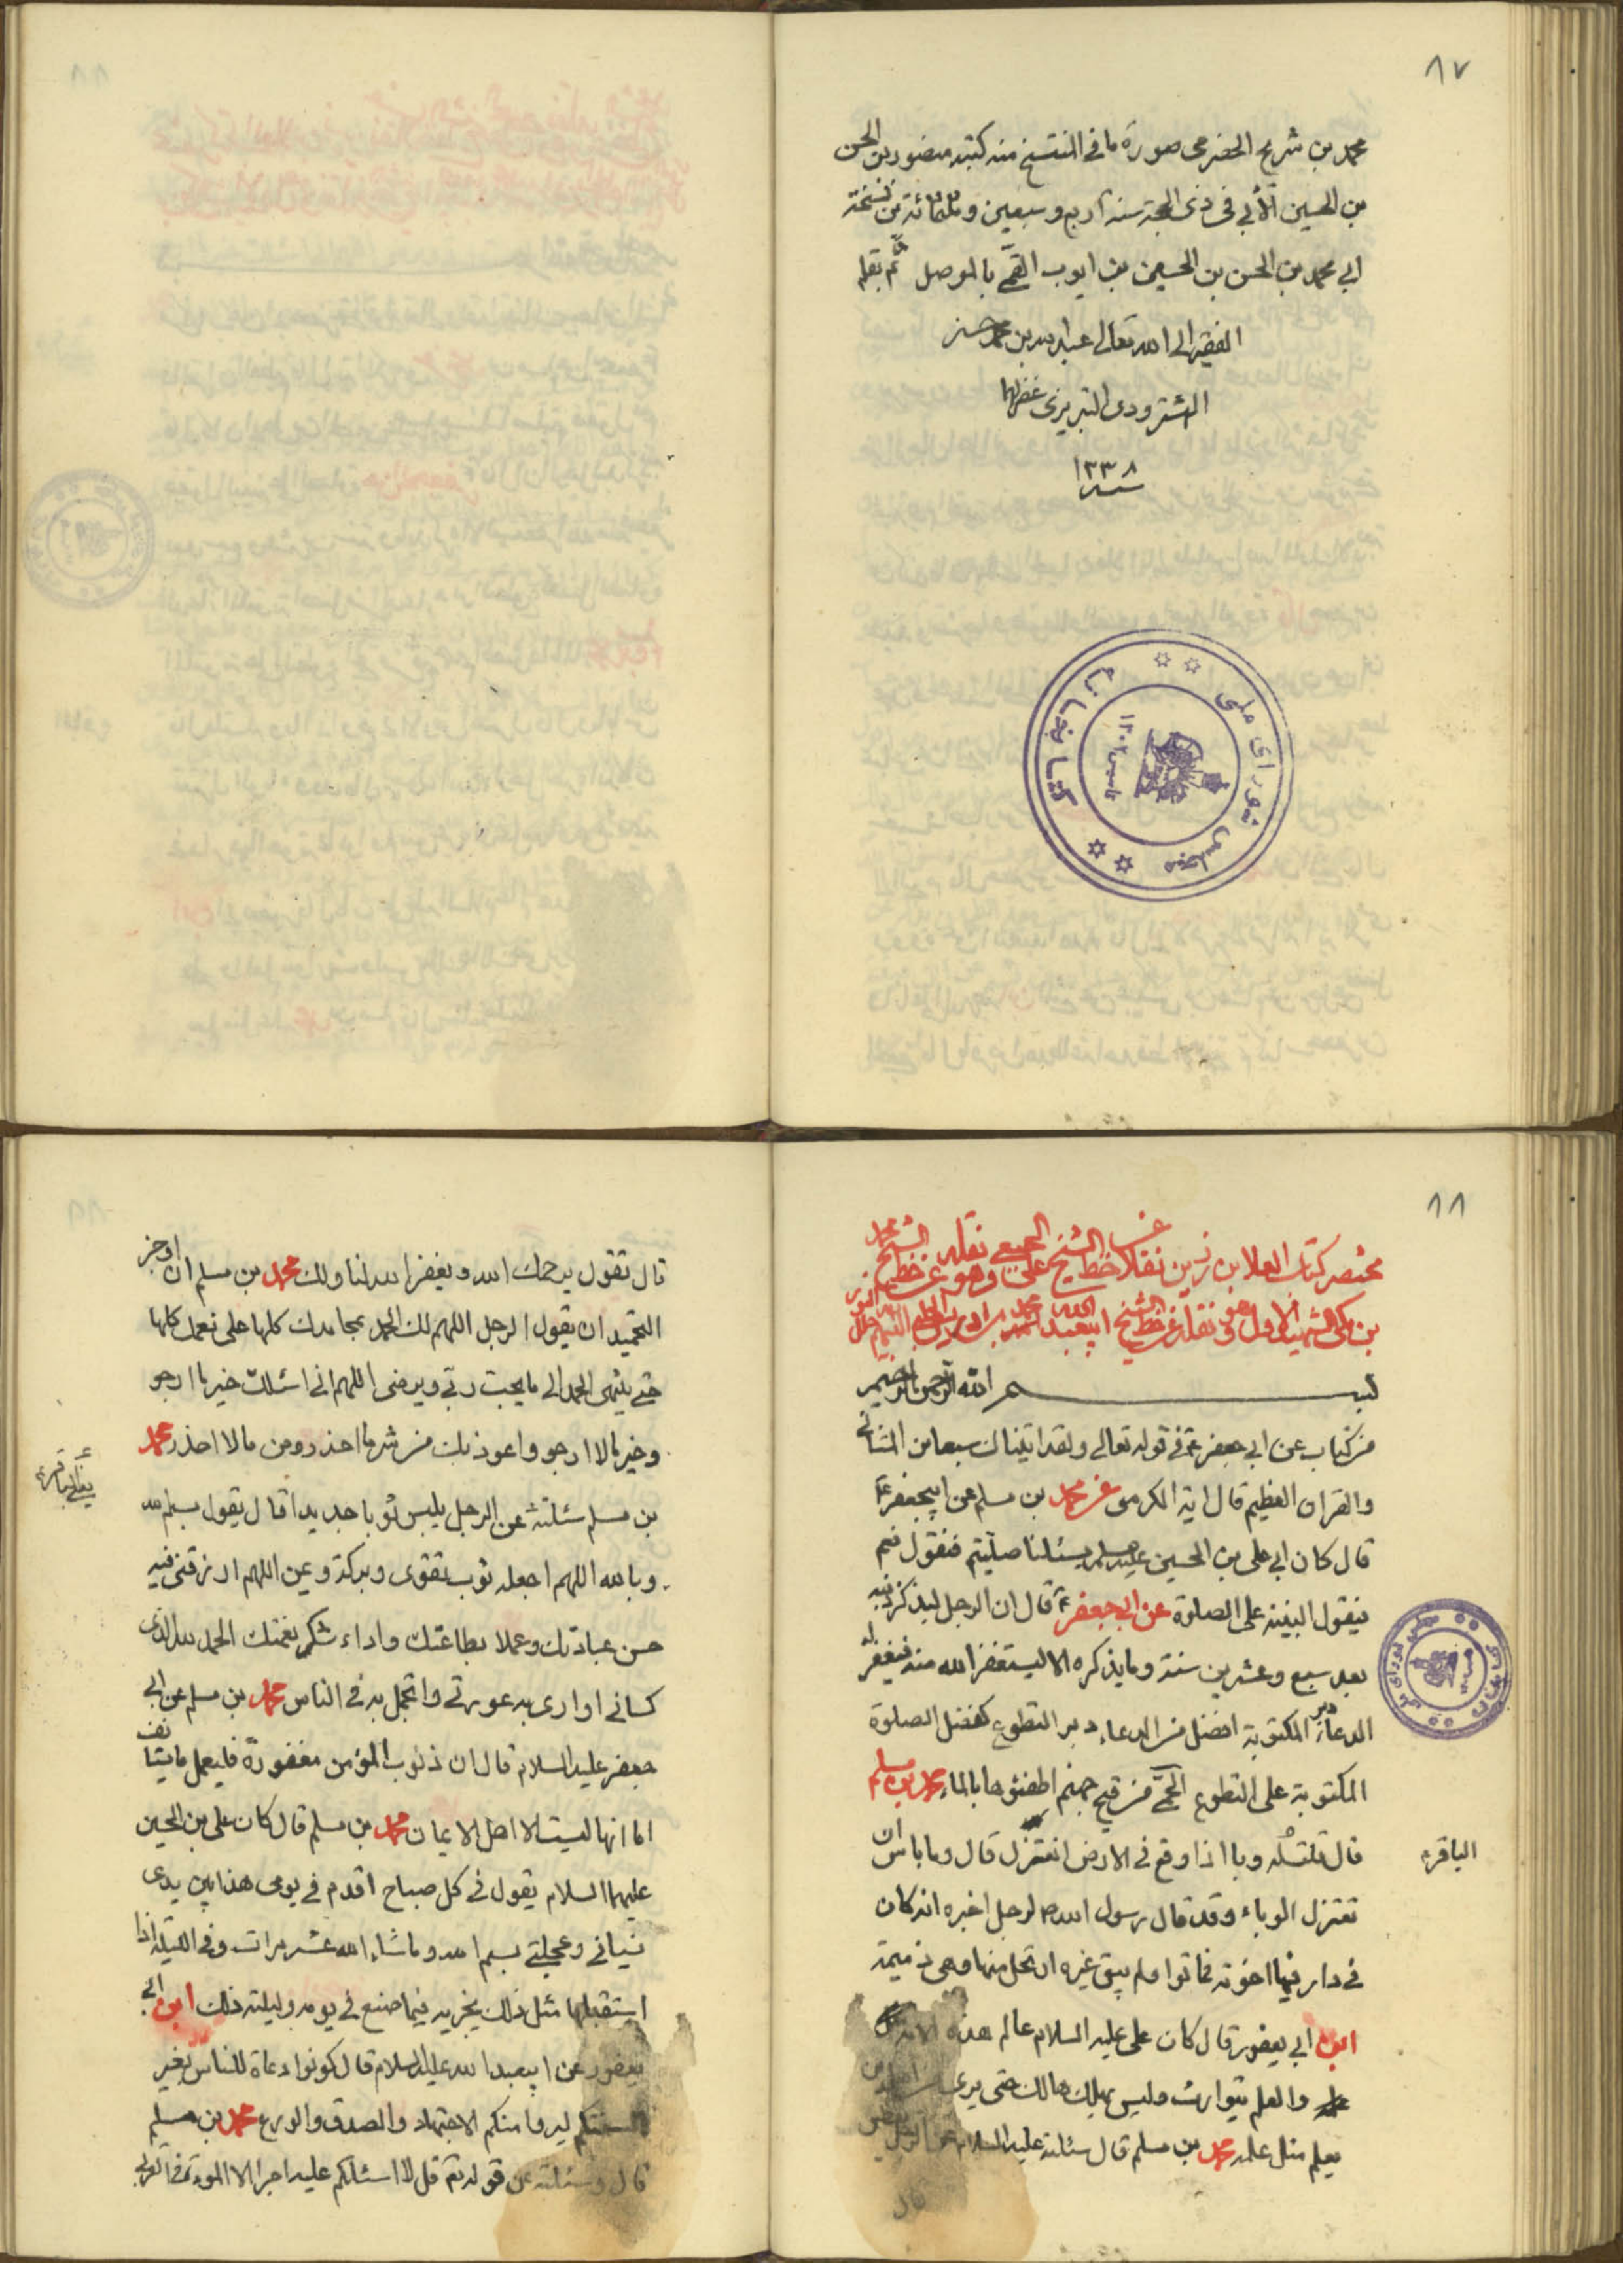 ٨٧
محمد بن شريح الحضرمى صورة ما فى المنتسخ منه كتبه منصور بن الحسن
بن الحسين الآبى فى ذى الحجة سنة اربع وسبعين وثلثمائة من نسخة
ابى محمد بن الحسن بن الحسين بن ايوب القمى بالموصل ثم نقله
الفقير الى الله تعالى عبد الله بن محمد حسن
الشترودى التبريزى غفر لهما
سنه ١٣٣٨
كتابخانه
مجلس شوراى ملى
٨٨
مختصر كتاب العلا بن رزين نقلا خط الشيخ على الجبعى نقله وهو عن خط الشيخ محمد
بن مكى الشهيد الاول وهو نقله عن خط الشيخ ابيعبد الله محمد بن ادريس الحلى
بسم الله الرحمن الرحيم
من كتاب عن ابى جعفر ع فى قوله تعالى ولقد اتيناك سبعا من المثانى
والقران العظيم قال اية الكرسى عن محمد بن مسلم عن ابيجعفر ع
قال كان ابى على بن الحسين عليهما يسئلنا صليتم فنقول نعم
فيقول البينة على الصلوة عن ابى جعفر ع قال ان الرجل ليذكر ذنبه
بعد سبع وعشرين سنة وما يذكره الا ليستغفر الله منه فيغفر له
الدعاء دبر المكتوبة افضل من الدعاء دبر التطوع كفضل الصلوة
المكتوبة على التطوع الحمى من قيح جهنم اطفئوها بالماء محمد بن مسلم
قال قلت له وبا اذا وقع فى الارض انعتزل قال وما باس ان
الباقر ع
تعتزل الوباء وقد قال رسول الله ص لرجل اخبره انه كان
فى دار فيها اخوته فماتوا ولم يبق غيره ارتحل منها وهى ذميمة
ابن ابى يعفور قال كان على عليه السلام عالم هذه الامة
والعلم يتوارث وليس يهلك هالك حتى يرى من اهله من
يعلم مثل علمه محمد بن مسلم قال سئلته عليه السلام عن الرجل يعطس
قال
قال تقول يرحمك الله ويغفر الله لنا ولك محمد بن مسلم ان اوجز
التحميد ان يقول الرجل اللهم لك الحمد بمحامدك كلها على نعمك كلها
حتى ينتهى الحمد الى ما يحب ربى ويرضى اللهم انى اسئلك خير ما ارجو
وخير ما لا ارجو واعوذ بك من شر ما احذر ومن ما لا احذر محمد
يعنى الباقر ع
بن مسلم سئلته عن الرجل يلبس ثوبا جديدا قال يقول بسم الله
وبالله اللهم اجعله ثوب تقوى وبركة ويمن اللهم ارزقنى فيه
حسن عبادتك وعملا بطاعتك واداء شكر نعمتك الحمد لله الذى
كسانى اوارى به عورتى واتجمل به فى الناس محمد بن مسلم عن ابى
جعفر عليه السلام قال ان ذنوب المؤمن مغفورة فليعمل ما يستانف
اما انها ليست الا اهل الايمان محمد بن مسلم قال كان على بن الحسين
عليهما السلام يقول فى كل صباح اقدم فى يومى هذا بين يدى
نسيانى وعجلتى بسم الله وما شاء الله عشر مرات وفى الليلة اذا
استقبلها مثل ذلك يجزيه فيما صنع فى يومه وليلته ذلك ابن ابى
يعفور عن ابيعبد الله عليه السلام قال كونوا دعاة للناس بغير
السنتكم ليروا منكم الاجتهاد والصدق والورع محمد بن مسلم
قال وسئلته عن قوله تع قل لا اسئلكم عليه اجرا الا المودة فى القربى